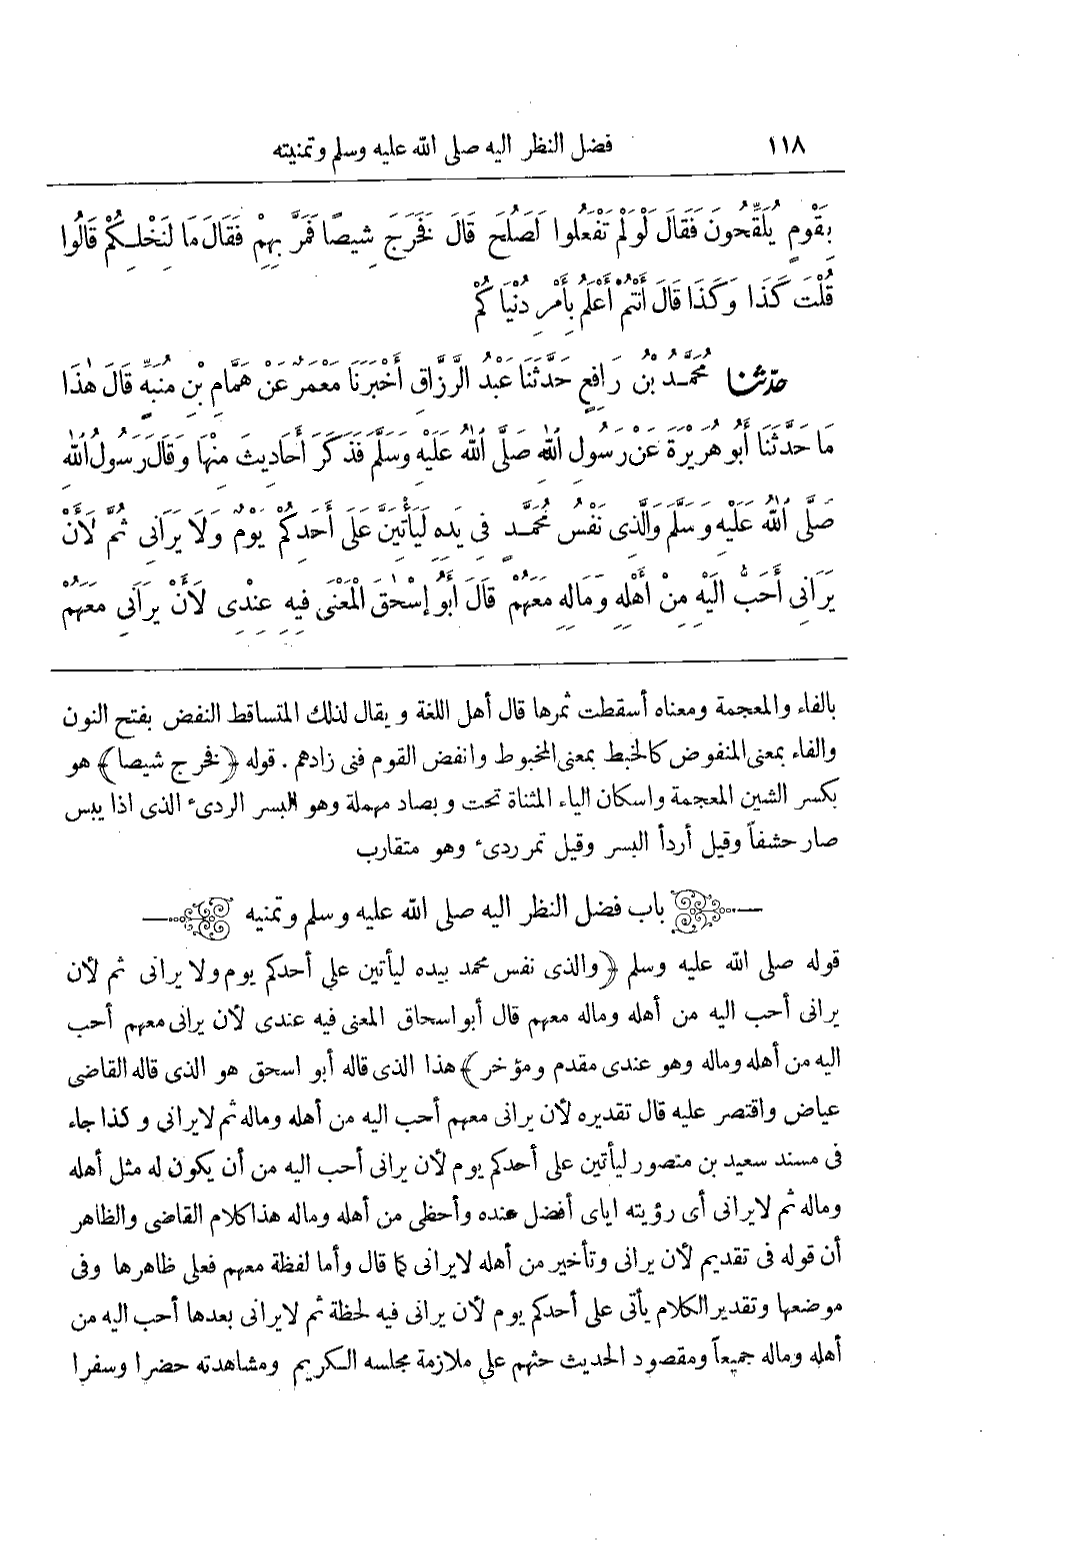 ١١٨ فضل النظر اليه صلى الله عليه وسلم وتمنيته
بِقَوْمٍ يُلَقِّحُونَ فَقَالَ لَوْ لَمْ تَفْعَلُوا لَصَلُحَ قَالَ فَخَرَجَ شِيصًا فَمَرَّ بِهِمْ فَقَالَ مَا لِنَخْلِكُمْ قَالُوا
قُلْتَ كَذَا وَكَذَا قَالَ أَنْتُمْ أَعْلَمُ بِأَمْرِ دُنْيَاكُمْ
حدثنا مُحَمَّدُ بْنُ رَافِعٍ حَدَّثَنَا عَبْدُ الرَّزَّاقِ أَخْبَرَنَا مَعْمَرٌ عَنْ هَمَّامِ بْنِ مُنَبِّهٍ قَالَ هٰذَا
مَا حَدَّثَنَا أَبُو هُرَيْرَةَ عَنْ رَسُولِ اللهِ صَلَّى اللهُ عَلَيْهِ وَسَلَّمَ فَذَكَرَ أَحَادِيثَ مِنْهَا وَقَالَ رَسُولُ اللهِ
صَلَّى اللهُ عَلَيْهِ وَسَلَّمَ وَالَّذِى نَفْسُ مُحَمَّدٍ فِى يَدِهِ لَيَأْتِيَنَّ عَلَى أَحَدِكُمْ يَوْمٌ وَلَا يَرَانِى ثُمَّ لَأَنْ
يَرَانِى أَحَبُّ الَيْهِ مِنْ أَهْلِهِ وَمَالِهِ مَعَهُمْ قَالَ أَبُو إِسْحٰقَ الْمَعْنَى فِيهِ عِنْدِى لَأَنْ يَرَانِى مَعَهُمْ
بالفاء والمعجمة ومعناه أسقطت ثمرها قال أهل اللغة ويقال لذلك المتساقط النفض بفتح النون
والفاء بمعنى المنفوض كالخبط بمعنى المخبوط وانفض القوم فنى زادهم . قوله ﴿فخرج شيصا﴾ هو
بكسر الشين المعجمة واسكان الياء المثناة تحت وبصاد مهملة وهو البسر الردىء الذى اذا يبس
صار حشفاً وقيل أردأ البسر وقيل تمر ردىء وهو متقارب
باب فضل النظر اليه صلى الله عليه وسلم وتمنيه
قوله صلى الله عليه وسلم ﴿والذى نفس محمد بيده ليأتين على أحدكم يوم ولا يرانى ثم لأن
يرانى أحب اليه من أهله وماله معهم قال أبو اسحاق المعنى فيه عندى لأن يرانى معهم أحب
اليه من أهله وماله وهو عندى مقدم ومؤخر﴾ هذا الذى قاله أبو اسحق هو الذى قاله القاضى
عياض واقتصر عليه قال تقديره لأن يرانى معهم أحب اليه من أهله وماله ثم لا يرانى وكذا جاء
فى مسند سعيد بن منصور ليأتين على أحدكم يوم لأن يرانى أحب اليه من أن يكون له مثل أهله
وماله ثم لا يرانى أى رؤيته اياى أفضل عنده وأحظى من أهله وماله هذا كلام القاضى والظاهر
أن قوله فى تقديم لأن يرانى وتأخير من أهله لا يرانى كما قال وأما لفظة معهم فعلى ظاهرها وفى
موضعها وتقدير الكلام يأتى على أحدكم يوم لأن يرانى فيه لحظة ثم لا يرانى بعدها أحب اليه من
أهله وماله جميعاً ومقصود الحديث حثهم على ملازمة مجلسه الكريم ومشاهدته حضرا وسفرا